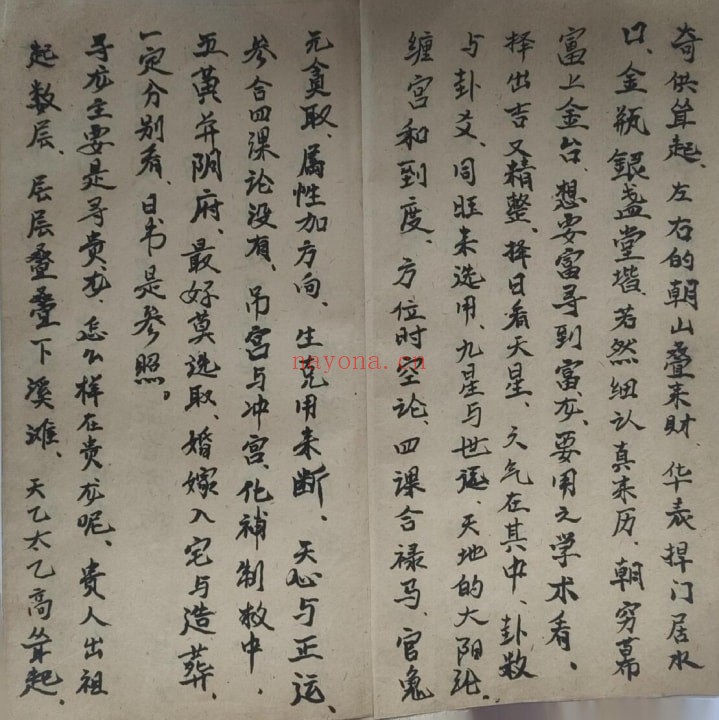 奇供耸起、左右的朝山叠来财、华表捍门居水
口、金瓶银盏堂堦、若然细认真来历、朝穷暮
富上金台、想要富寻到富龙、要用之学术看。
择出吉又精整、择日看天星、六气在其中、卦数
与卦爻、同旺来选用、九星与世运、天地的大阳
缠宫和到度、方位时空论、四课合禄马、官鬼
元贪取、属性加方向、生克用来断、天心与正运、
参合四课论没有、吊宫与冲宫、化补制救中、
五黄并阴府、最好莫选取、婚嫁入宅与造葬、
一定分别看、日书是参照。
寻龙主要是寻贵龙、怎么样在贵龙呢、贵人出祖
起数层、层层叠叠下溪滩、天乙太乙高耸起、
nayona.cn